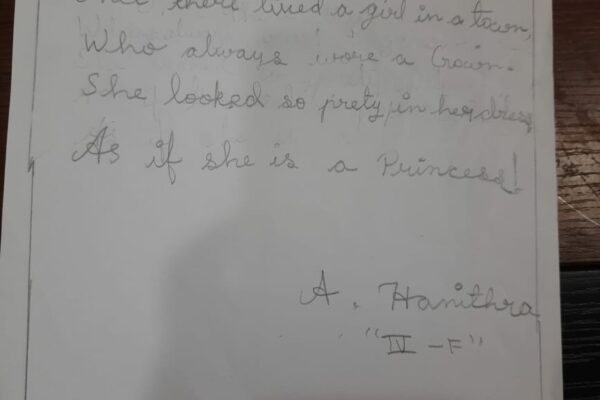 there lived a girl in a town,
Who always wore a Crown.
She looked so prety in her dress
As if she is a Princess!
A. Hanithra
"IV - F"